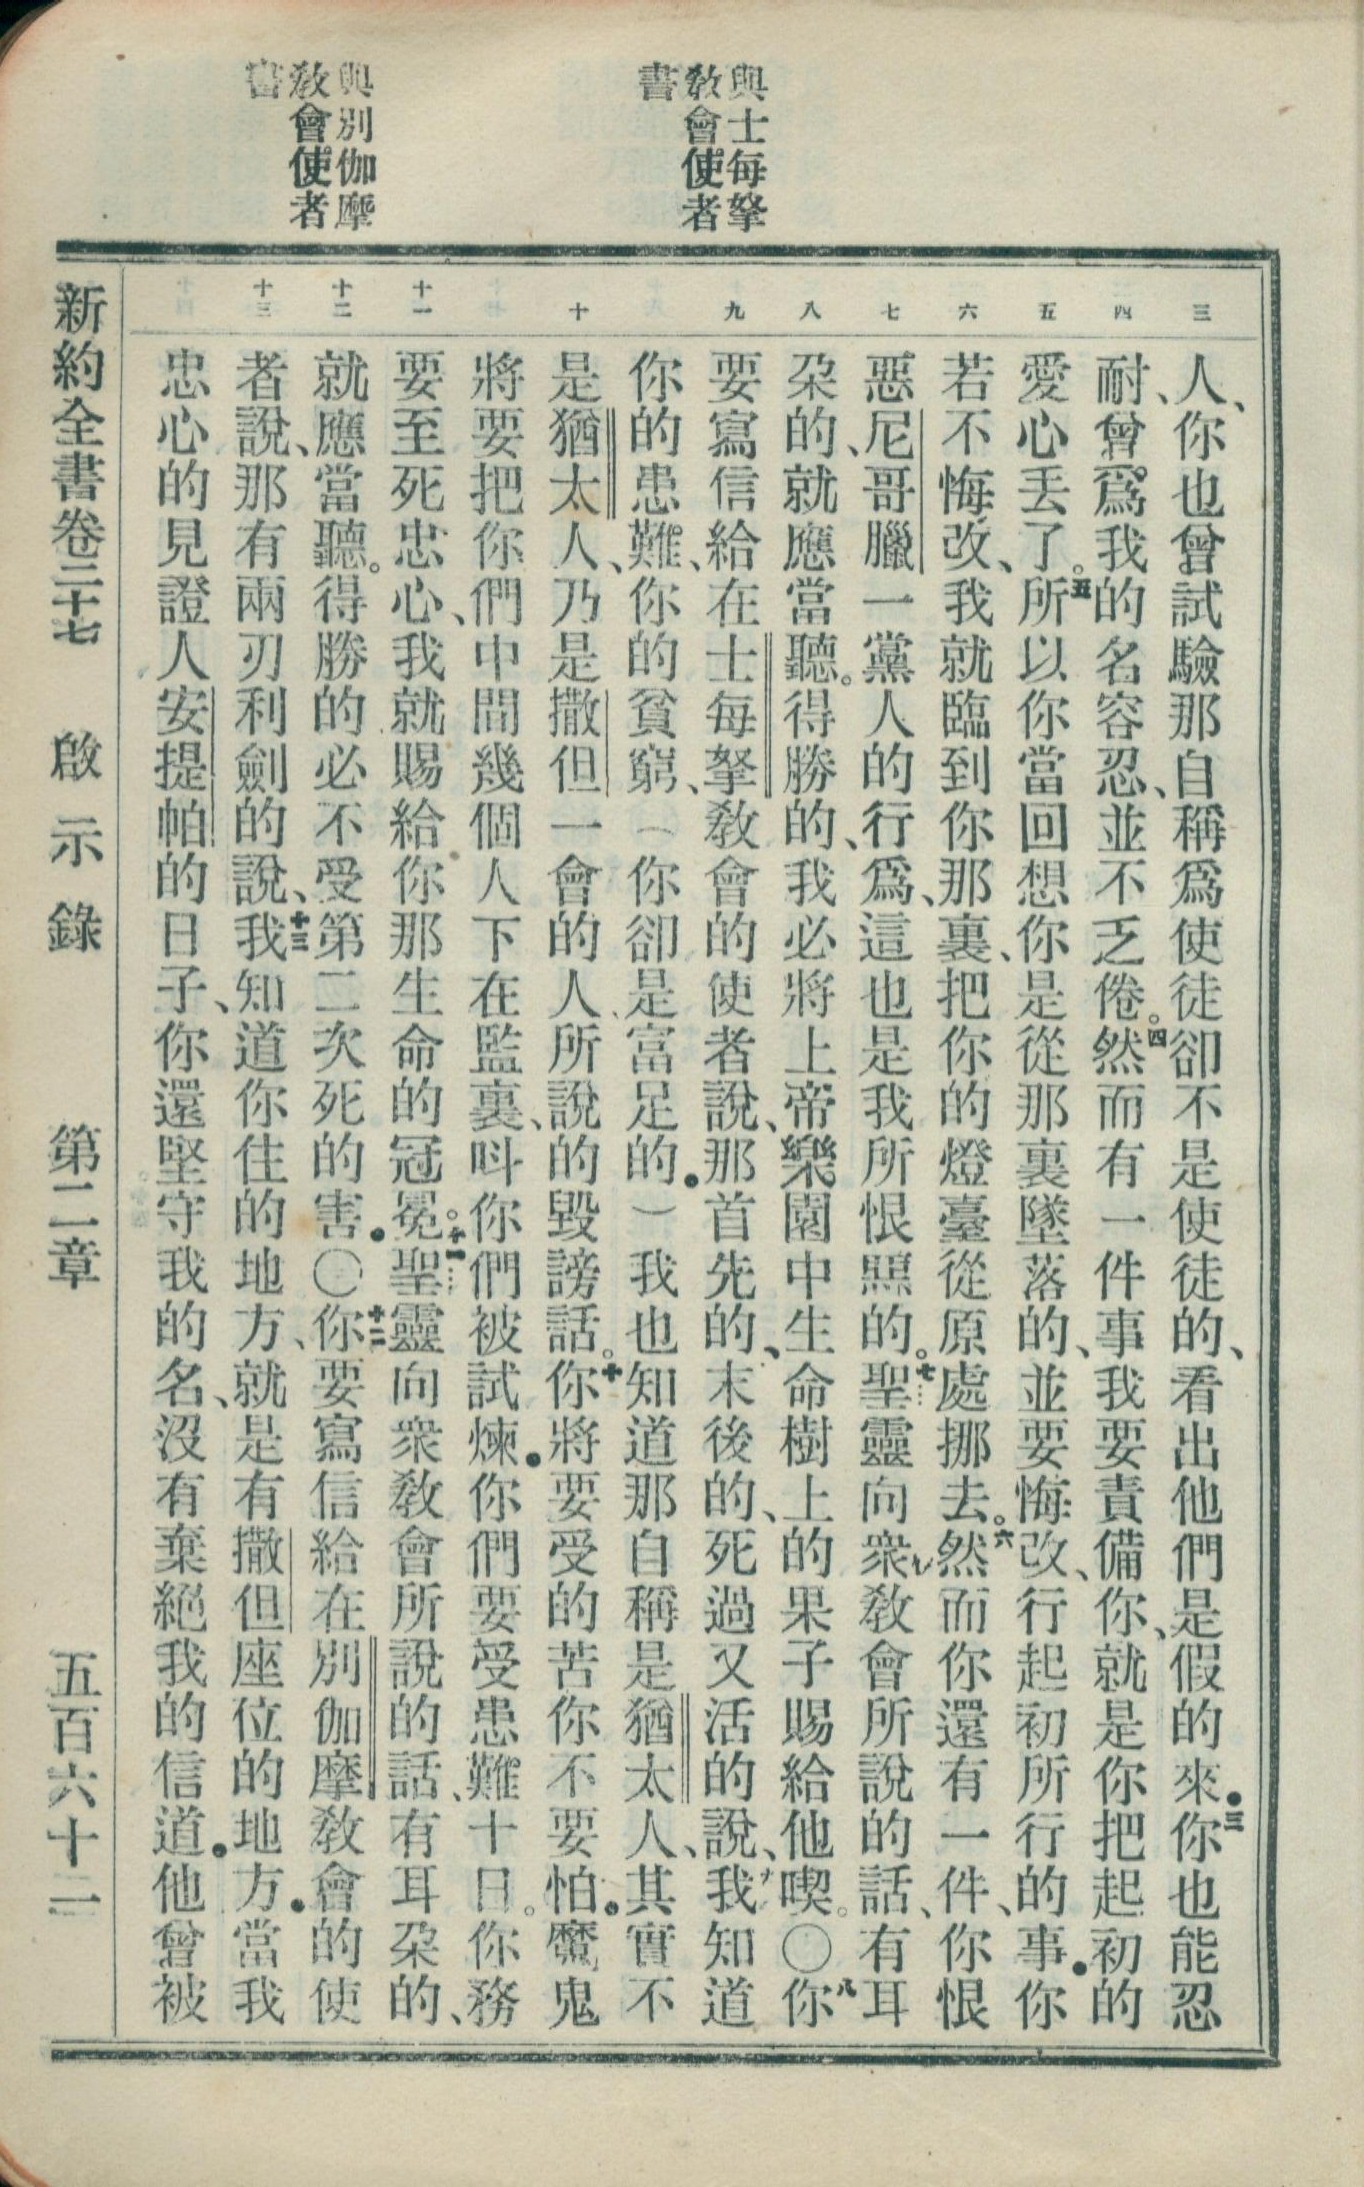 與士每拏
敎會使者
書
與別伽摩
敎會使者
書
三 四 五 六 七 八 九 十 十一 十二 十三
人、你也曾試驗那自稱爲使徒卻不是使徒的、看出他們是假的來●三你也能忍
耐、曾爲我的名容忍、並不乏倦。四然而有一件事我要責備你、就是你把起初的
愛心丟了。五所以你當回想你是從那裏墜落的、並要悔改、行起初所行的事●你
若不悔改、我就臨到你那裏、把你的燈臺從原處挪去。六然而你還有一件、你恨
惡尼哥臘一黨人的行爲、這也是我所恨惡的。七聖靈向衆敎會所說的話、有耳
朶的、就應當聽。得勝的、我必將上帝樂園中生命樹上的果子賜給他喫。〇八你
要寫信給在士每拏敎會的使者說、那首先的、末後的、死過又活的說、九我知道
你的患難、你的貧窮、（你卻是富足的●）我也知道那自稱是猶太人、其實不
是猶太人、乃是撒但一會的人所說的毀謗話。十你將要受的苦你不要怕●魔鬼
將要把你們中間幾個人下在監裏、呌你們被試煉●你們要受患難十日。你務
要至死忠心、我就賜給你那生命的冠冕。十一聖靈向衆敎會所說的話、有耳朶的、
就應當聽。得勝的必不受第二次死的害●〇十二你要寫信給在別伽摩敎會的使
者說、那有兩刃利劍的說、十三我知道你住的地方、就是有撒但座位的地方●當我
忠心的見證人安提帕的日子、你還堅守我的名、沒有棄絕我的信道●他曾被
新約全書卷二十七 啟示錄 第二章 五百六十二